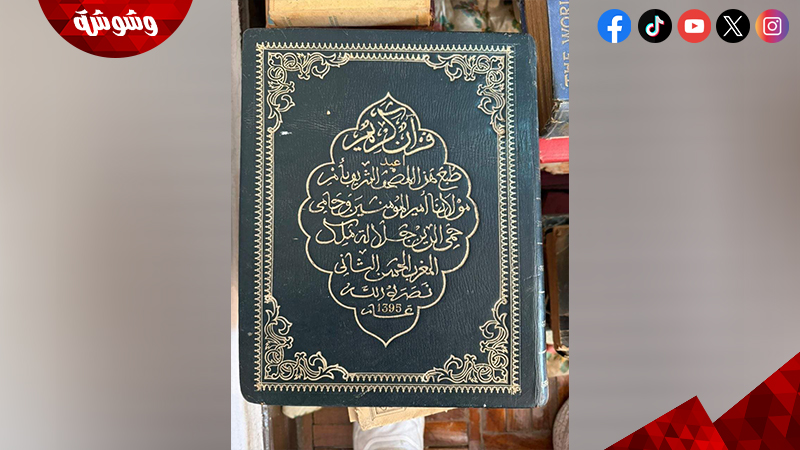 وشوشة
قرآن كريم
أعيد
طبع هذا المصحف الشريف بأمر
مولانا أمير المؤمنين وحامي
حمى الدين جلالة ملك
المغرب الحسن الثاني
نصره الله
عام 1395
THE WORL